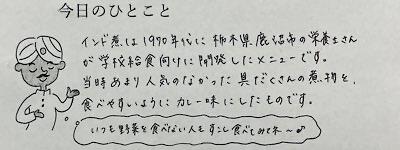 今日のひとこと
インド煮は1970年代に栃木県鹿沼市の栄養士さん
が学校給食向けに開発したメニューです。
当時あまり人気のなかった具だくさんの煮物を、
食べやすいようにカレー味にしたものです。
いつも野菜を食べない人もすこし食べてみてネ〜♪